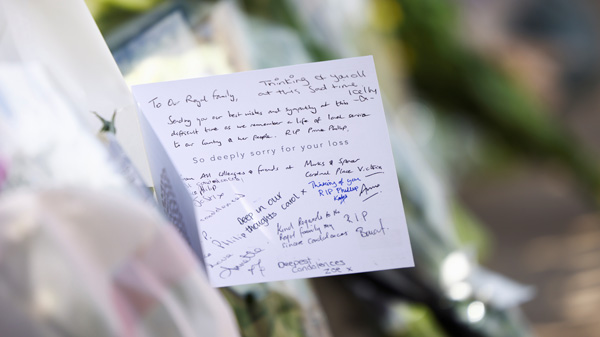 Thinking of you all
at this sad time
To Our Royal Family,
Sending you our best wishes and sympathy at this
difficult time as we remember a life of loyal service
to our country & her people. RIP Prince Philip.
So deeply sorry for your loss
All colleagues & friends at Marks & Spencer
Cardinal Place Victoria
Philip
Thinking of you
R.I.P Phillip
Deep in our
thoughts Carol x
Kind Regards to the
Royal family my
sincere condolences
R.I.P
Deepest
condolences
Zoe x